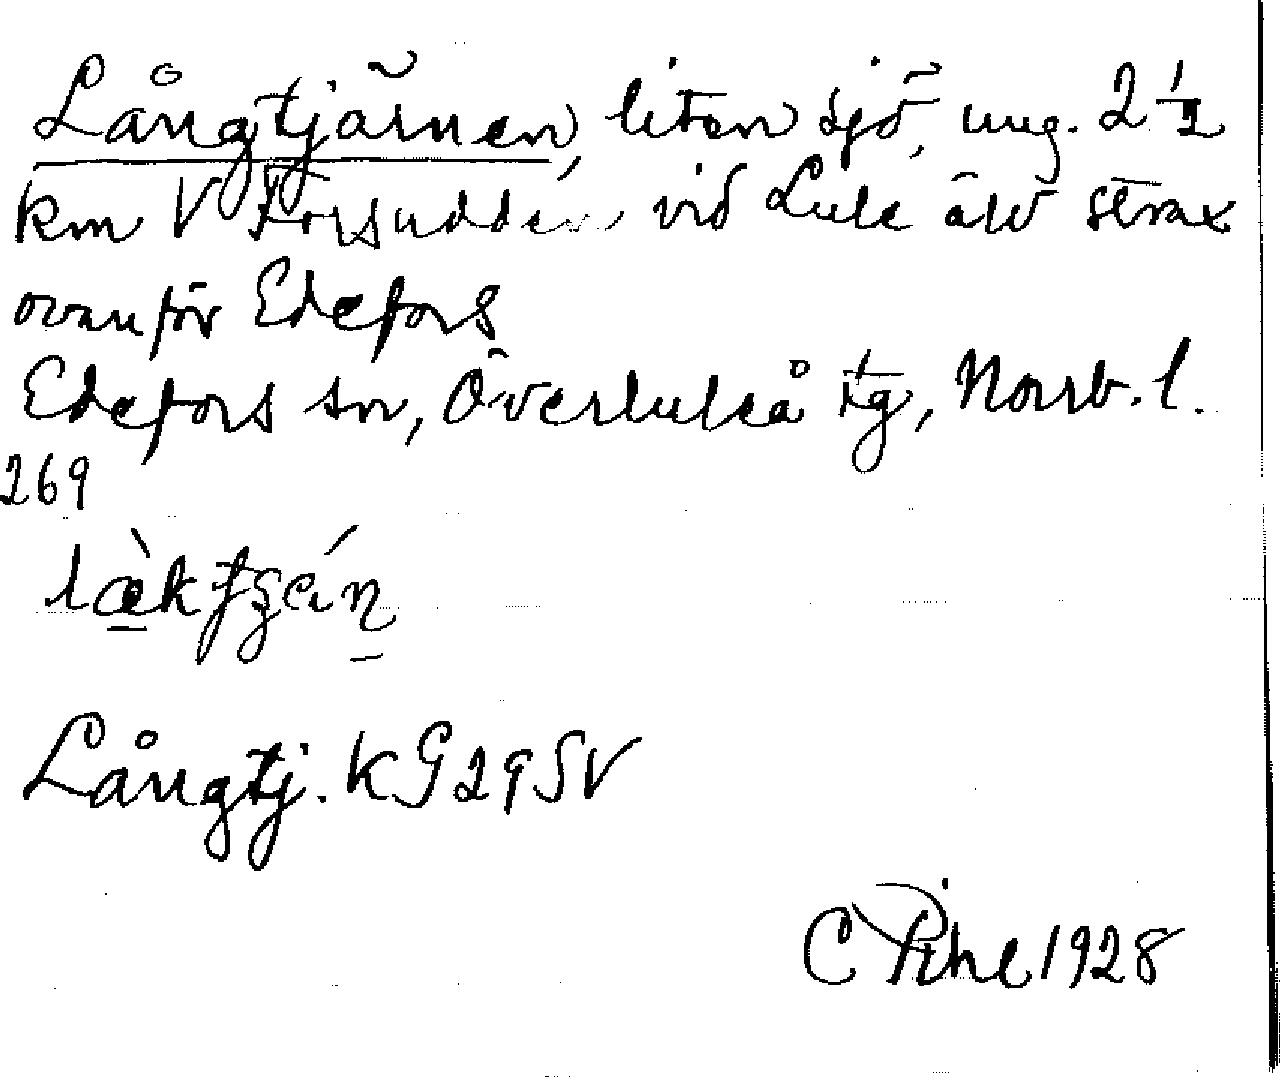 Långtjärnen, liten sjö, ung. 2 1/2
km V Forsudden vid Lule älv strax
ovanför Edefors
Edefors sn, Överluleå tg, Norrb. l.
269
Långtj. KG 29 SV
C Pihl 1928